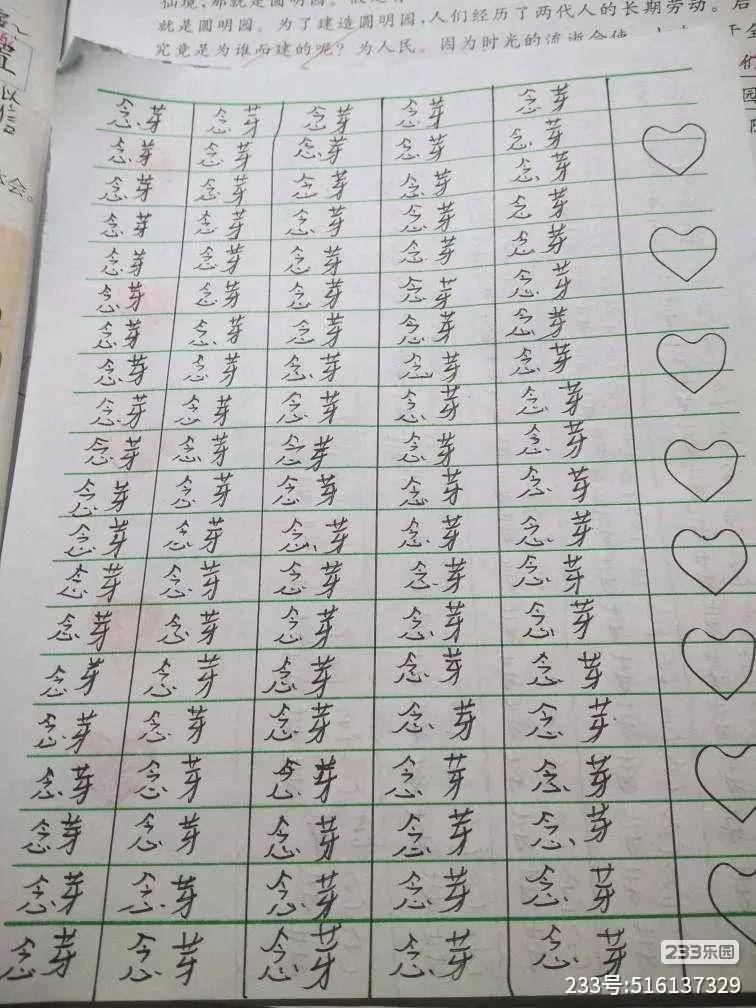 就是圆明园。为了建造圆明园,人们经历了两代人的长期劳动。后
究竟是为谁而建的呢?为人民。因为时光的流逝会使
们
园
会。
念芽 念芽 念芽 念芽 念芽
念芽 念芽 念芽 念芽 念芽
念芽 念芽 念芽 念芽 念芽
念芽 念芽 念芽 念芽 念芽
念芽 念芽 念芽 念芽 念芽
念芽 念芽 念芽 念芽 念芽
念芽 念芽 念芽 念芽 念芽
念芽 念芽 念芽 念芽 念芽
念芽 念芽 念芽 念芽 念芽
念芽 念芽 念芽 念芽 念芽
念芽 念芽 念芽 念芽 念芽
念芽 念芽 念芽 念芽 念芽
念芽 念芽 念芽 念芽 念芽
念芽 念芽 念芽 念芽 念芽
念芽 念芽 念芽 念芽 念芽
念芽 念芽 念芽 念芽 念芽
念芽 念芽 念芽 念芽 念芽
念芽 念芽 念芽 念芽 念芽
念芽 念芽 念芽 念芽 念芽
念芽 念芽 念芽 念芽 念芽
233乐园
233号:516137329